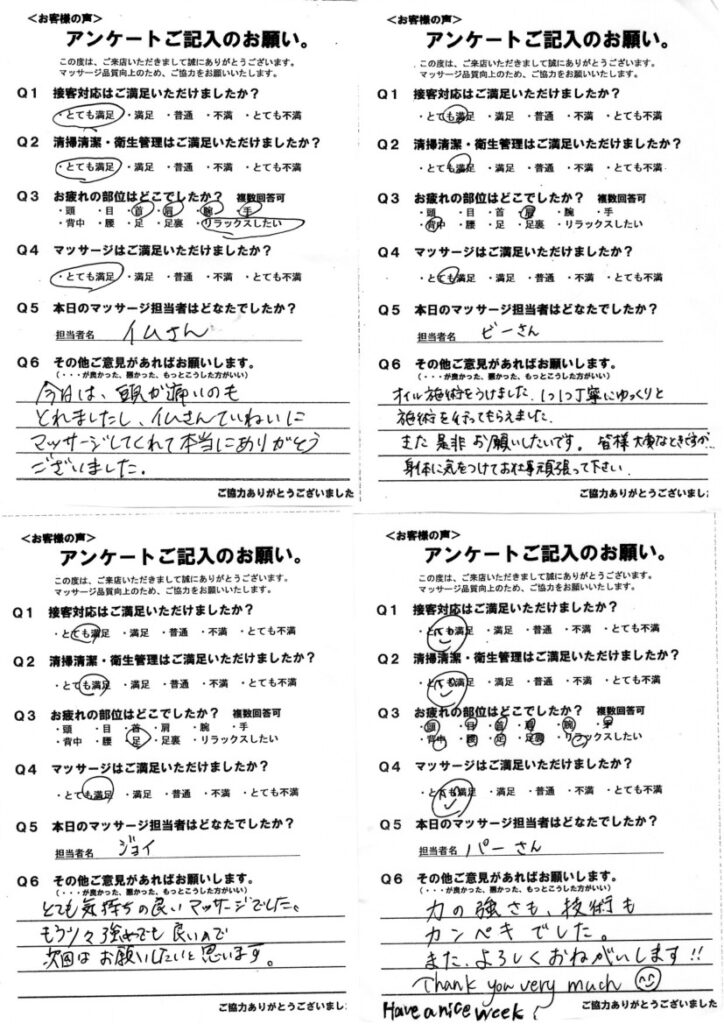 <お客様の声>
アンケートご記入のお願い。
この度は、ご来店いただきまして誠にありがとうございます。
マッサージ品質向上のため、ご協力をお願いいたします。
Q1 接客対応はご満足いただけましたか？
・とても満足 ・満足 ・普通 ・不満 ・とても不満
Q2 清掃清潔・衛生管理はご満足いただけますか？
・とても満足 ・満足 ・普通 ・不満 ・とても不満
Q3 お疲れの部位はどこでしたか？ 複数回答可
・頭 ・目 ・首 ・肩 ・腕 ・手
・背中 ・腰 ・足 ・足裏 ・リラックスしたい
Q4 マッサージはご満足いただけましたか？
・とても満足 ・満足 ・普通 ・不満 ・とても不満
Q5 本日のマッサージ担当者はどなたでしたか？
担当者名 イムさん
Q6 その他ご意見があればお願いします。
（・・・が良かった、悪かった、もっとこうした方がいい）
今日は、頭が痛いのも
とれましたし、イムさんていねいに
マッサージしてくれて本当にありがとう
ございました。
ご協力ありがとうございました
<お客様の声>
アンケートご記入のお願い。
この度は、ご来店いただきまして誠にありがとうございます。
マッサージ品質向上のため、ご協力をお願いいたします。
Q1 接客対応はご満足いただけましたか？
・とても満足 ・満足 ・普通 ・不満 ・とても不満
Q2 清掃清潔・衛生管理はご満足いただけますか？
・とても満足 ・満足 ・普通 ・不満 ・とても不満
Q3 お疲れの部位はどこでしたか？ 複数回答可
・頭 ・目 ・首 ・肩 ・腕 ・手
・背中 ・腰 ・足 ・足裏 ・リラックスしたい
Q4 マッサージはご満足いただけましたか？
・とても満足 ・満足 ・普通 ・不満 ・とても不満
Q5 本日のマッサージ担当者はどなたでしたか？
担当者名 ビーさん
Q6 その他ご意見があればお願いします。
（・・・が良かった、悪かった、もっとこうした方がいい）
オイル施術をうけました。1つ1つ丁寧にゆっくりと
施術を行ってもらえました。
また 是非 お願いしたいです。皆様大変なときですが…
身体に気をつけてお仕事頑張って下さい。
ご協力ありがとうございまし
<お客様の声>
アンケートご記入のお願い。
この度は、ご来店いただきまして誠にありがとうございます。
マッサージ品質向上のため、ご協力をお願いいたします。
Q1 接客対応はご満足いただけましたか？
・とても満足 ・満足 ・普通 ・不満 ・とても不満
Q2 清掃清潔・衛生管理はご満足いただけますか？
・とても満足 ・満足 ・普通 ・不満 ・とても不満
Q3 お疲れの部位はどこでしたか？ 複数回答可
・頭 ・目 ・首 ・肩 ・腕 ・手
・背中 ・腰 ・足 ・足裏 ・リラックスしたい
Q4 マッサージはご満足いただけましたか？
・とても満足 ・満足 ・普通 ・不満 ・とても不満
Q5 本日のマッサージ担当者はどなたでしたか？
担当者名 ジョイ
Q6 その他ご意見があればお願いします。
（・・・が良かった、悪かった、もっとこうした方がいい）
とても気持ちの良いマッサージでした。
もう少々強めでも良いので
次回はお願いしたいと思います。
ご協力ありがとうございまし
<お客様の声>
アンケートご記入のお願い。
この度は、ご来店いただきまして誠にありがとうございます。
マッサージ品質向上のため、ご協力をお願いいたします。
Q1 接客対応はご満足いただけましたか？
・とても満足 ・満足 ・普通 ・不満 ・とても不満
Q2 清掃清潔・衛生管理はご満足いただけますか？
・とても満足 ・満足 ・普通 ・不満 ・とても不満
Q3 お疲れの部位はどこでしたか？ 複数回答可
・頭 ・目 ・首 ・肩 ・腕 ・手
・背中 ・腰 ・足 ・足裏 ・リラックスしたい
Q4 マッサージはご満足いただけましたか？
・とても満足 ・満足 ・普通 ・不満 ・とても不満
Q5 本日のマッサージ担当者はどなたでしたか？
担当者名 パーさん
Q6 その他ご意見があればお願いします。
（・・・が良かった、悪かった、もっとこうした方がいい）
力の強さも、技術も
カンペキでした。
また、よろしくおねがいします!!
Thank you very much
Have a nice week!
ご協力ありがとうございました